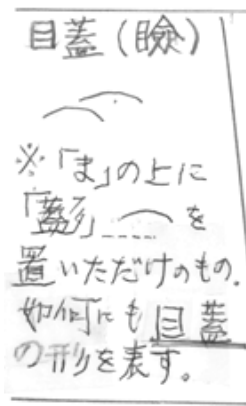 目蓋(瞼)
※「ま」の上に
「蓋形」を
置いただけのもの。
如何にも目蓋
の形を表す。